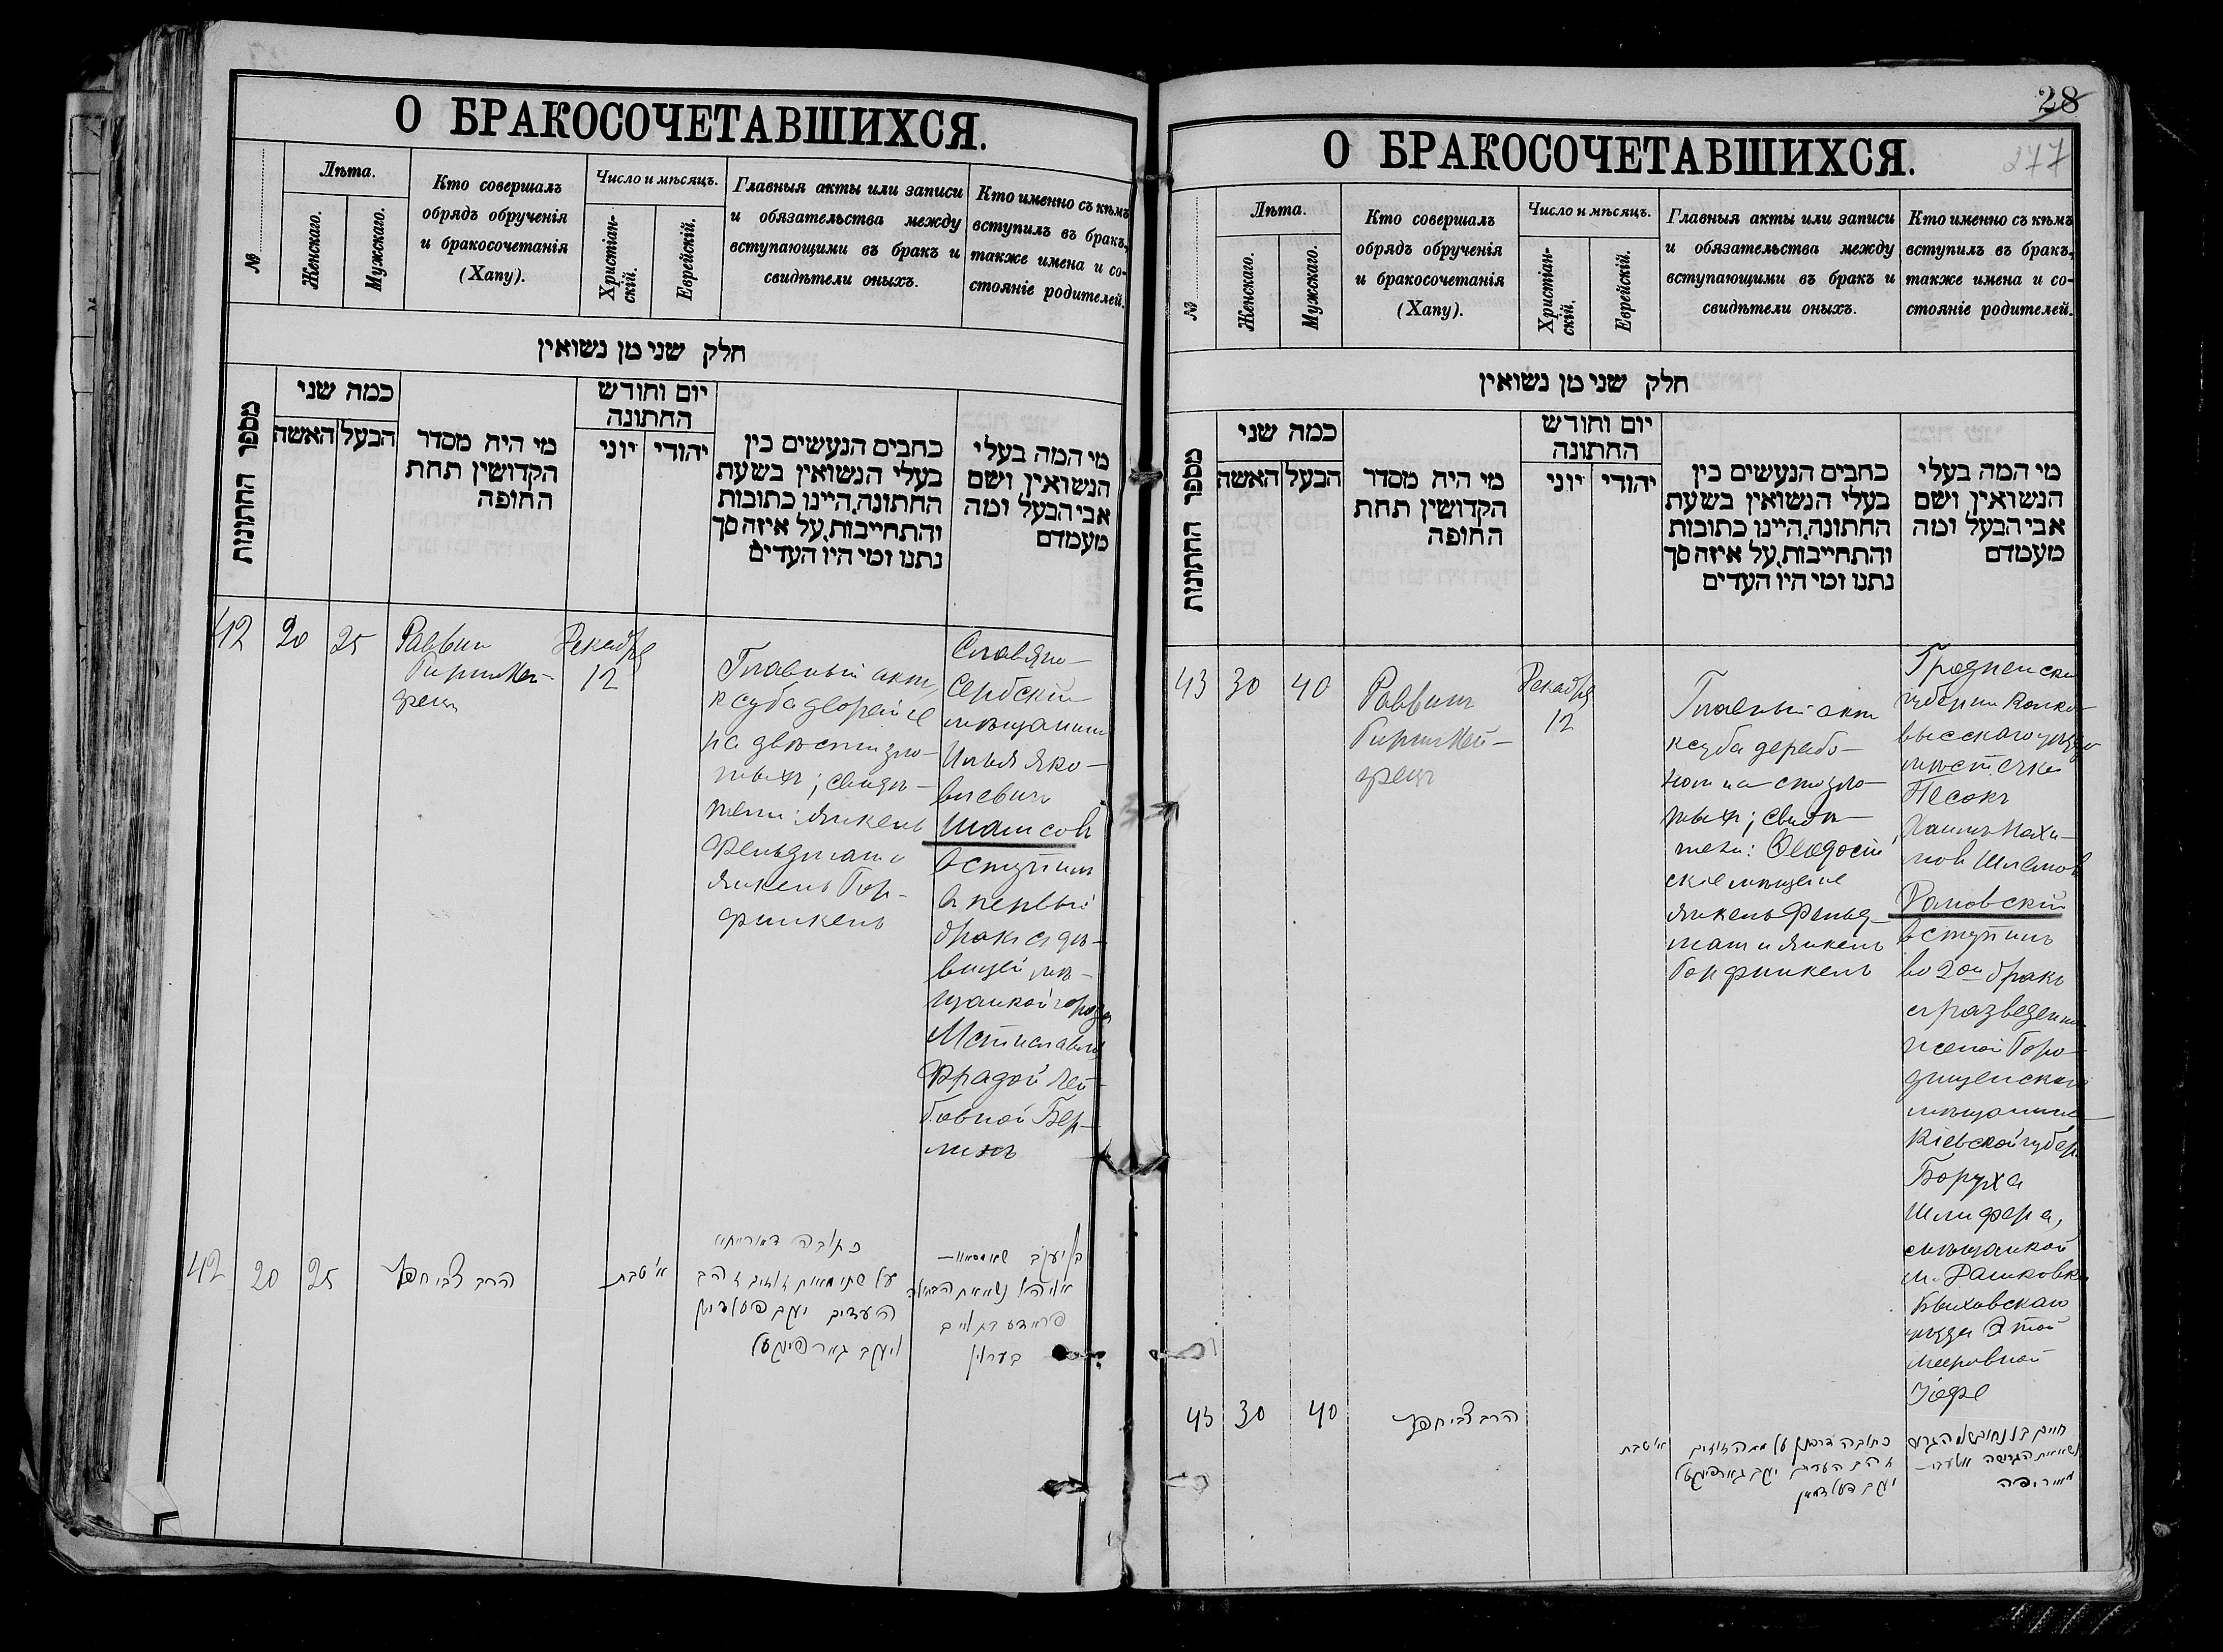 О БРАКОСОЧЕТАВШИХСЯ.
№
Лѣта.
Женскаго.
Мужскаго.
Кто совершалъ
обрядъ обрученія
и бракосочетанія
(Хапу).
Число и мѣсяцъ.
Христіан-
скій.
Еврейскій.
Главныя акты или записи
и обязательства между
вступающими въ бракъ и
свидѣтели оныхъ.
Кто именно съ кѣмъ
вступилъ въ бракъ,
также имена и со-
стояніе родителей.
חלק שני מן נשואין
מספר החתונות
כמה שני
האשה
הבעל
מי היה מסדר
הקדושין תחת
החופה
יום וחודש
החתונה
יוני
יהודי
כתבים הנעשים בין
בעלי הנשואין בשעת
החתונה, היינו כתובות
והתחייבות, על איזה סך
נתנו ומי היו העדים
מי המה בעלי
הנשואין ושם
אבי הבעל ומה
מעמדם
42
20
25
Раввин
Гиршъ Хей-
фецъ
Декабря
12
Главный акт
ксуба деорайсе
на двѣсти зло-
тыхъ; свидѣ-
тели: Янкель
Фельдман и
Янкель Гор-
финкель
Славяно-
Сербскій
мѣщанинъ
Илья Яко-
влевичъ
Шамсов
вступилъ
в первый
бракъ съ дѣ-
вицей мѣ-
щанкой города
Мстиславля
Фрадой Лей-
бовной Бер-
линъ
42
20
25
הרב צבי חפץ
א' טבת
כתובה דאורייתא
על שתי מאות זהובים
העדים יעקב פעלדמאן
ויעקב גארפינקעל
בערלין
О БРАКОСОЧЕТАВШИХСЯ.
28
277
№
Лѣта.
Женскаго.
Мужскаго.
Кто совершалъ
обрядъ обрученія
и бракосочетанія
(Хапу).
Число и мѣсяцъ.
Христіан-
скій.
Еврейскій.
Главныя акты или записи
и обязательства между
вступающими въ бракъ и
свидѣтели оныхъ.
Кто именно съ кѣмъ
вступилъ въ бракъ,
также имена и со-
стояніе родителей.
חלק שני מן נשואין
מספר החתונות
כמה שני
האשה
הבעל
מי היה מסדר
הקדושין תחת
החופה
יום וחודש
החתונה
יוני
יהודי
כתבים הנעשים בין
בעלי הנשואין בשעת
החתונה, היינו כתובות
והתחייבות, על איזה סך
נתנו ומי היו העדים
מי המה בעלי
הנשואין ושם
אבי הבעל ומה
מעמדם
43
30
40
Раввинъ
Гиршъ Хей-
фецъ
Декабря
12
Главный акт
ксуба дерабо-
нон на сто зло-
тыхъ; свидѣ-
тели:
ские мѣщане
Янкель Фельд-
ман и Янкель
Горфинкель
Гродненской
губерніи Волко-
высскаго уѣзда
мѣстечка
Песокъ
Хаимъ Нахи-
мов Шлемов
Рамовскій
вступилъ
во 2ой бракъ
с разведенной
женой Горо-
дищенскаго
мѣщанина
Кіевской губер.
Боруха
Шлифера,
мѣщанкой
м. Рашковка
Быховскаго
уѣзда Этой
Мееровной
Іофе
43
30
40
הרב צבי חפץ
א' טבת
כתובה דרבנן על מאה זהובים
העדים יעקב גארפינקעל
יעקב פעלדמאן